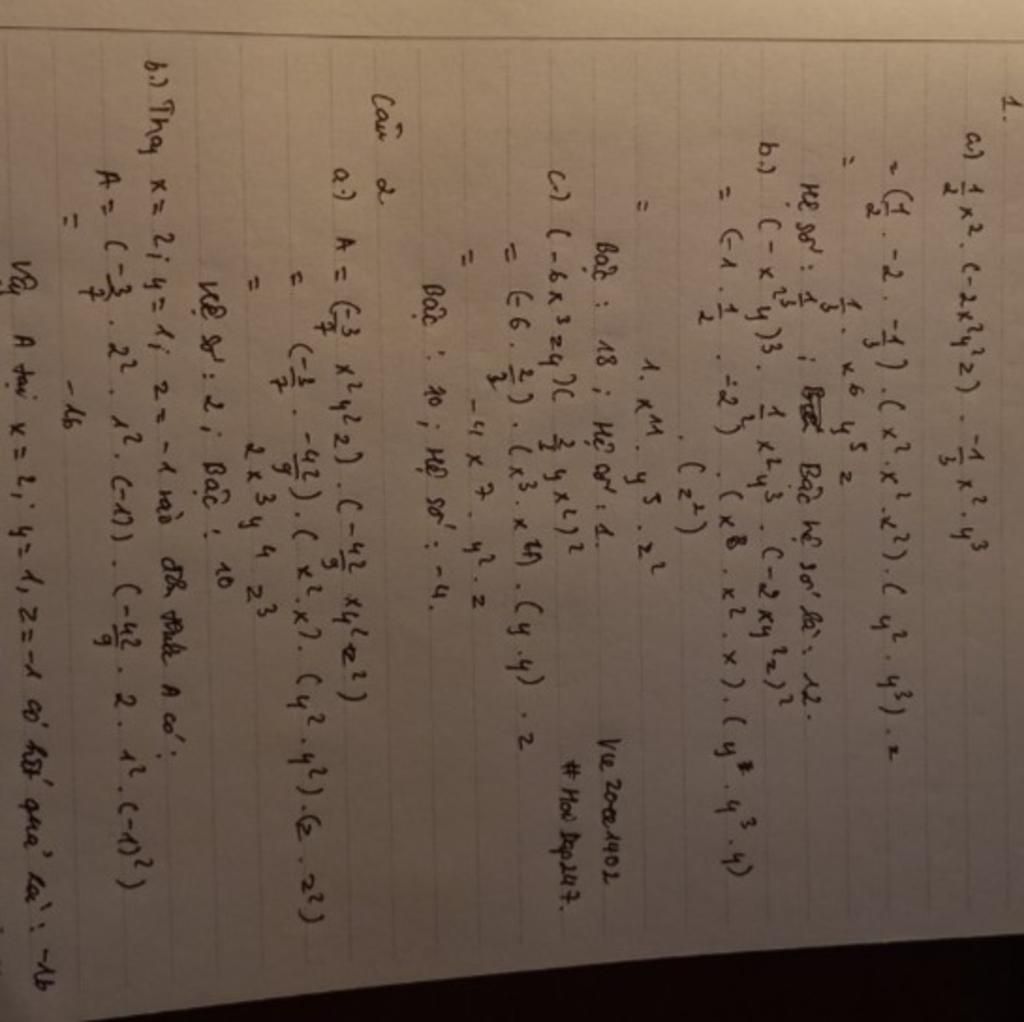 1.
a) 1/2 x². (-2x²y²z) . -1/3 x² . y³
= (1/2 . -2 . -1/3) . (x² . x² . x²) . (y² . y³) . z
= 1/3 . x⁶ y⁵ z
Hệ số : 1/3 ; Bậc hệ số là : 12.
b.) (-x²y)³ . 1/2 x²y³ . (-2xy²z)²
= (-1 . 1/2 . -2²) . (x⁸ . x² . x) . (y⁷ . y³ . y)
. (z²)
= 1. x¹¹ . y⁵ . z²
Bậc : 18 ; Hệ số : 1.
c.) (-6x³zy)( 2/3 yx²)²
= (-6 . 2/3) . (x³ . x⁴) . (y . y) . z
= -4 x⁷ . y² . z
Bậc : 10 ; Hệ số : -4.
#HoiDap247.
Câu 2
a.) A = (-3/7 x²y²z) . (-42/9 xy²z²)
= (-3/7 . -42/9) . (x² . x) . (y² . y²) . (z . z²)
= 2x³y⁴z³
Hệ số : 2 ; Bậc : 10
b.) Thay x = 2 ; y = 1 ; z = -1 vào đơn thức A có :
A = (-3/7 . 2² . 1² . (-1)) . (-42/9 . 2 . 1² . (-1)²)
= -16
Vậy A tại x = 2 ; y = 1, z = -1 có kết quả là : -16